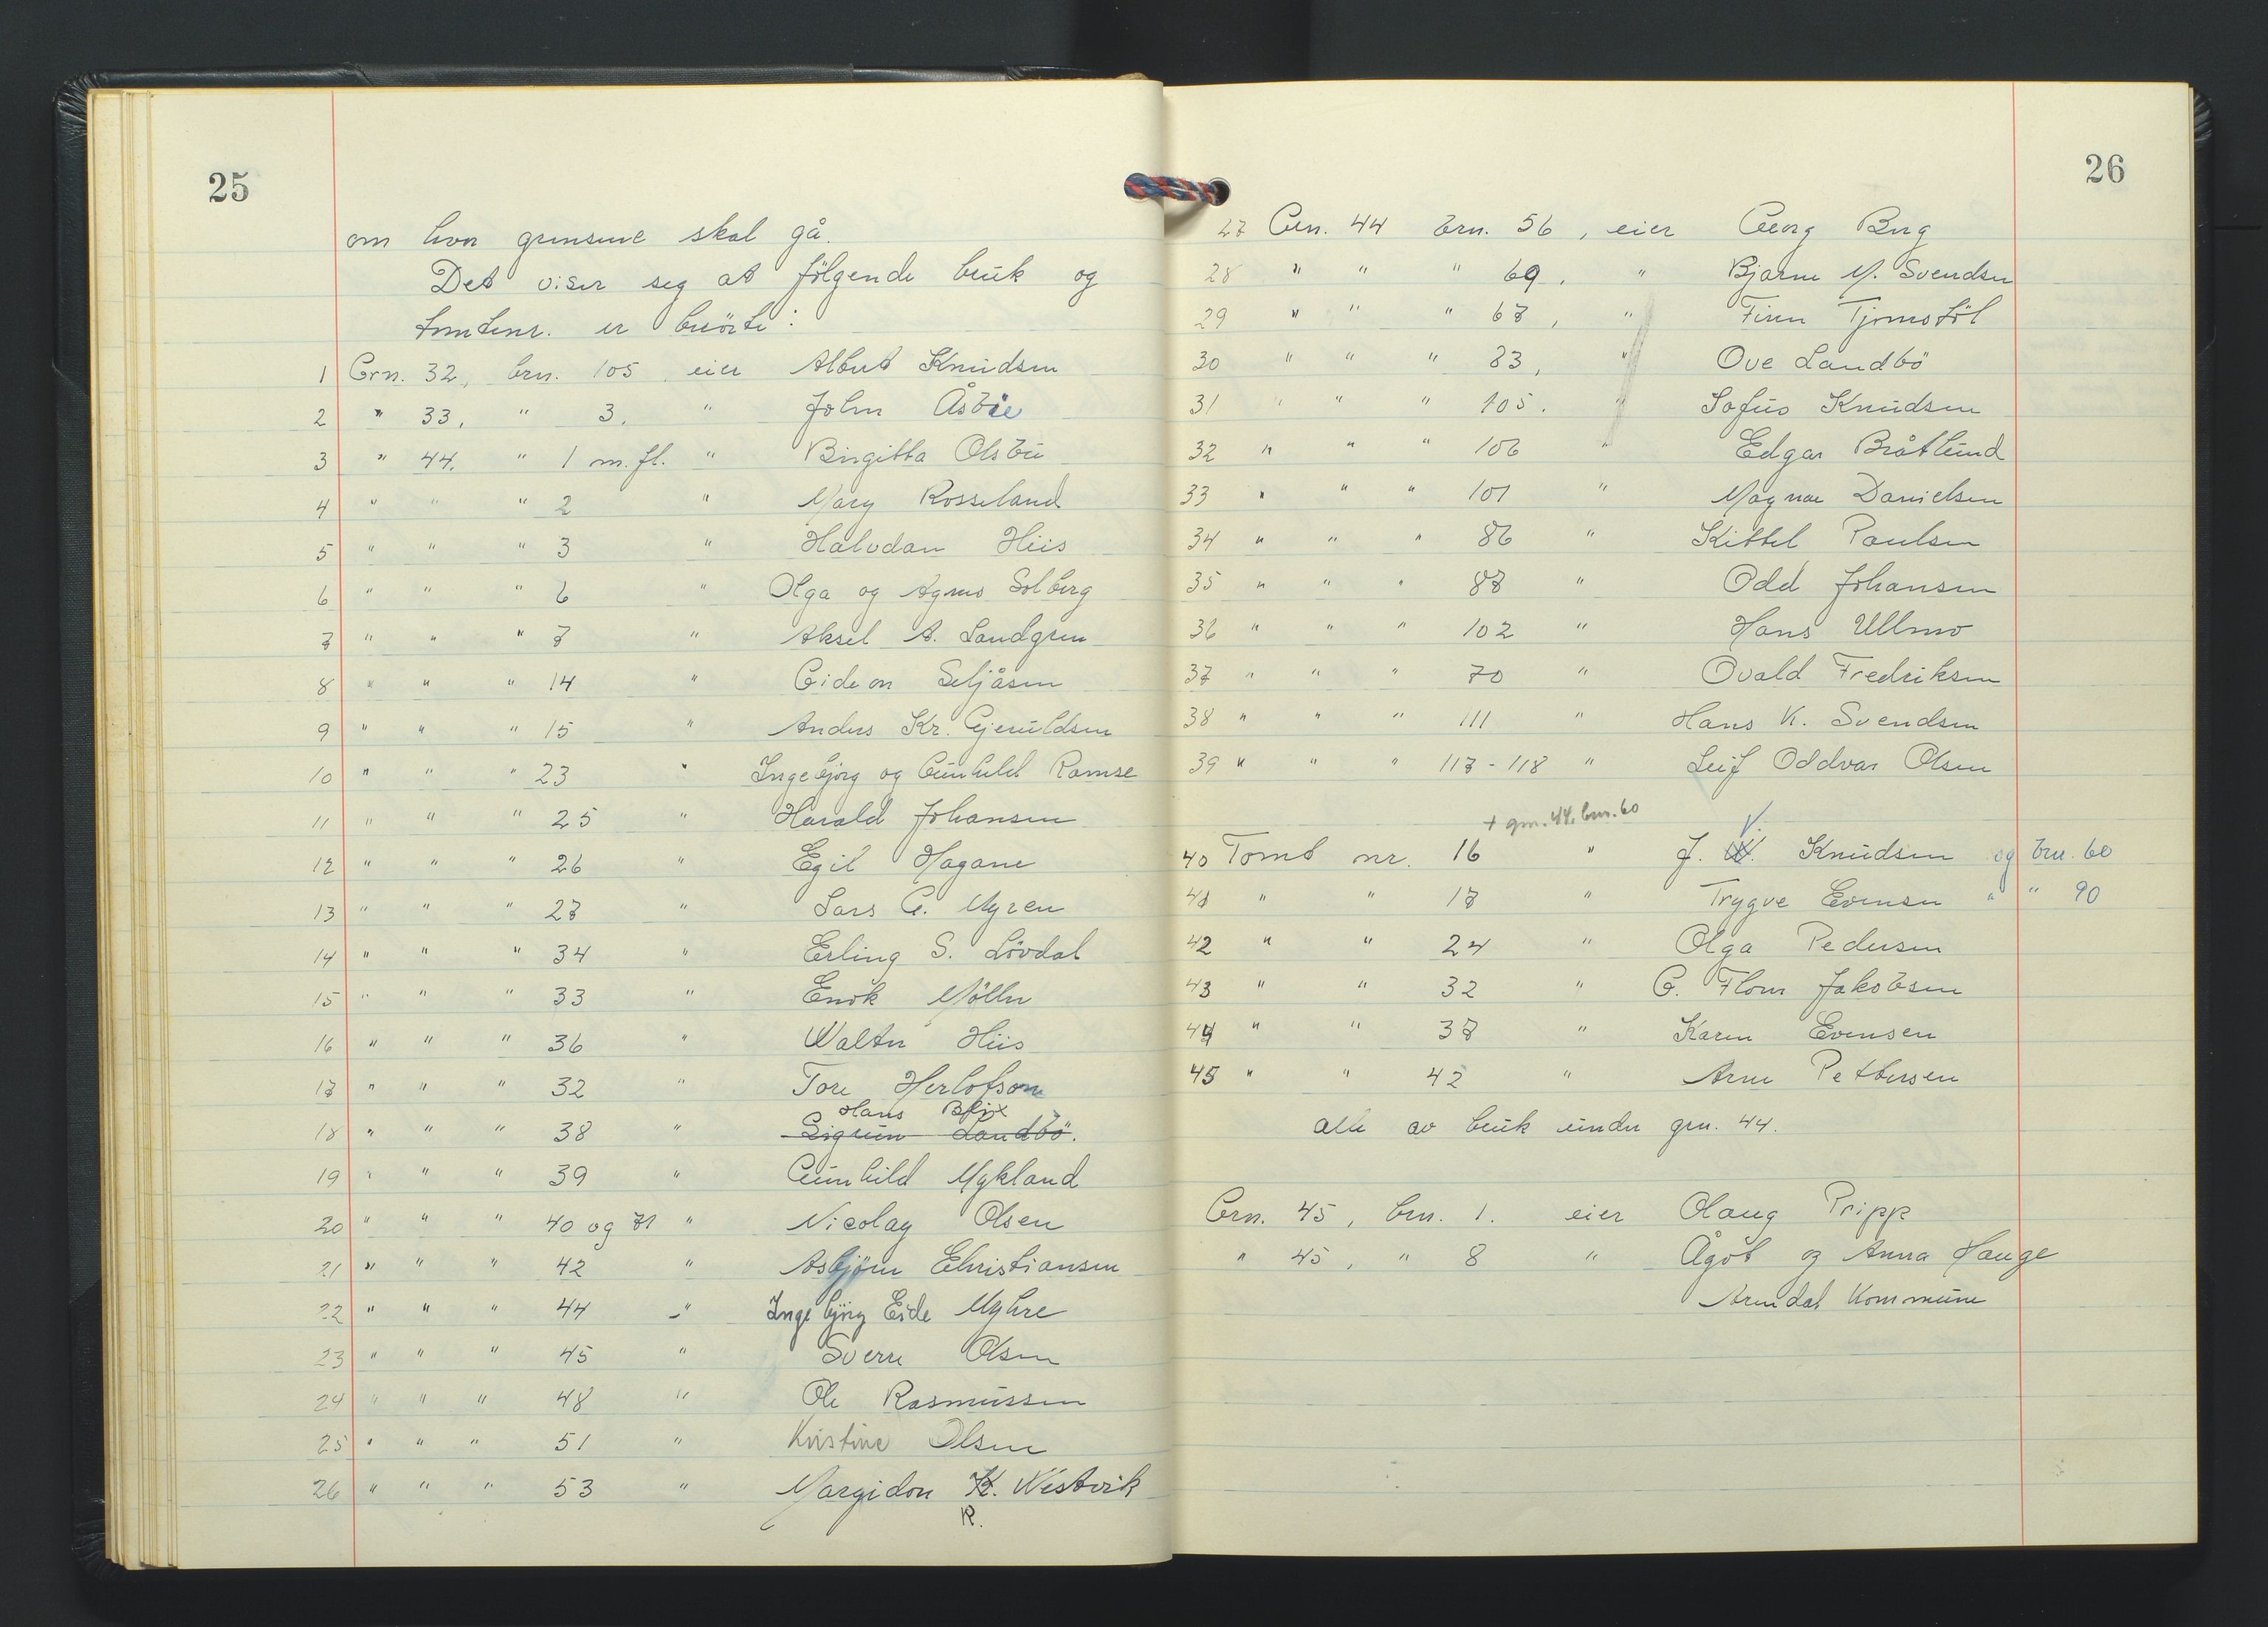 25
om hvor grensene skal gå.
Det viser seg at følgende bruk og
tomtenr. er berörte:
1 Grn. 32, brn. 105, eier Albert Knudsen
2 " 33, " 3, " John Åsbie
3 " 44, " 1 m.fl. " Birgitta Olsbu
4 " " " 2 " Mary Rosseland
5 " " " 3 " Halvdan Hiis
6 " " " 6 " Olga og Agnes Solberg
7 " " " 7 " Aksel A. Landgren
8 " " " 14 " Gideon Seljåsen
9 " " " 15 " Anders Kr. Gjeruldsen
10 " " " 23 " Ingebjørg og Gunhild Ramse
11 " " " 25 " Harald Johansen
12 " " " 26 " Egil Hagane
13 " " " 27 " Lars G. Myren
14 " " " 34 " Erling S. Lövdal
15 " " " 33 " Enok Möller
16 " " " 36 " Walter Hiis
17 " " " 32 " Tore Herlofson
Hans Blix
18 " " " 38 " Sigrun Landbö.
19 " " " 39 " Gunhild Mykland
20 " " " 40 og 71 " Nicolay Olsen
21 " " " 42 " Asbjørn Christiansen
22 " " " 44 " Ingebjörg Eide Myhre
23 " " " 45 " Sverre Olsen
24 " " " 48 " Ole Rasmussen
25 " " " 51 " Kristine Olsen
26 " " " 53 " Margidon K. Westvik
R.
26
27 Grn. 44 brn. 56, eier Georg Berg
28 " " " 69, " Bjarne M. Svendsen
29 " " " 67, " Finn Tjomstöl
30 " " " 83, " Ove Landbö
31 " " " 105. " Sofus Knudsen
32 " " " 106 " Edgar Bråtlund
33 " " " 101 " Magnar Danielsen
34 " " " 86 " Kittel Paulsen
35 " " " 87 " Odd Johansen
36 " " " 102 " Hans Ullmo
37 " " " 70 " Ovald Fredriksen
38 " " " 111 " Hans K. Svendsen
39 " " " 117-118 " Leif Oddvar Olsen
+ grn. 44, brn. 60
V.
40 Tomt nr. 16 " J. W. Knudsen og brn. 60
41 " " 17 " Trygve Evensen " " 90
42 " " 24 " Olga Pedersen
43 " " 32 " G. Flom Jakobsen
44 " " 37 " Karen Evensen
45 " " 42 " Arne Pettersen
alle av bruk under grn. 44.
Grn. 45, brn. 1. eier Olaug Pripp
" 45, " 8 " Ågöt og Anna Hauge
Arendal Kommune